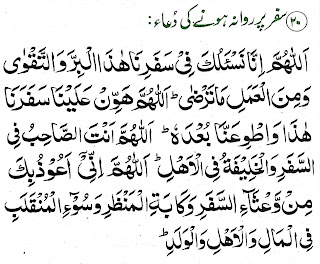 (۲۰) سفر پر روانہ ہونے کی دُعاء:
اَللّٰهُمَّ اِنَّا نَسْئَلُكَ فِیْ سَفَرِنَا هٰذَا الْبِرَّ وَالتَّقْوٰی
وَمِنَ الْعَمَلِ مَا تَرْضٰی ؕ اَللّٰهُمَّ هَوِّنْ عَلَیْنَا سَفَرَنَا
هٰذَا وَاطْوِعَنَّا بُعْدَهٗ ؕ اَللّٰهُمَّ اَنْتَ الصَّاحِبُ فِی
السَّفَرِ وَالْخَلِیْفَةُ فِی الْاَهْلِ ؕ اَللّٰهُمَّ اِنِّیْ اَعُوْذُ بِكَ
مِنْ وَّعْثَآءِ السَّفَرِ وَكَاٰبَةِ الْمَنْظَرِ وَسُوْٓءِ الْمُنْقَلَبِ
فِی الْمَالِ وَالْاَهْلِ وَالْوَلَدِ ؕ